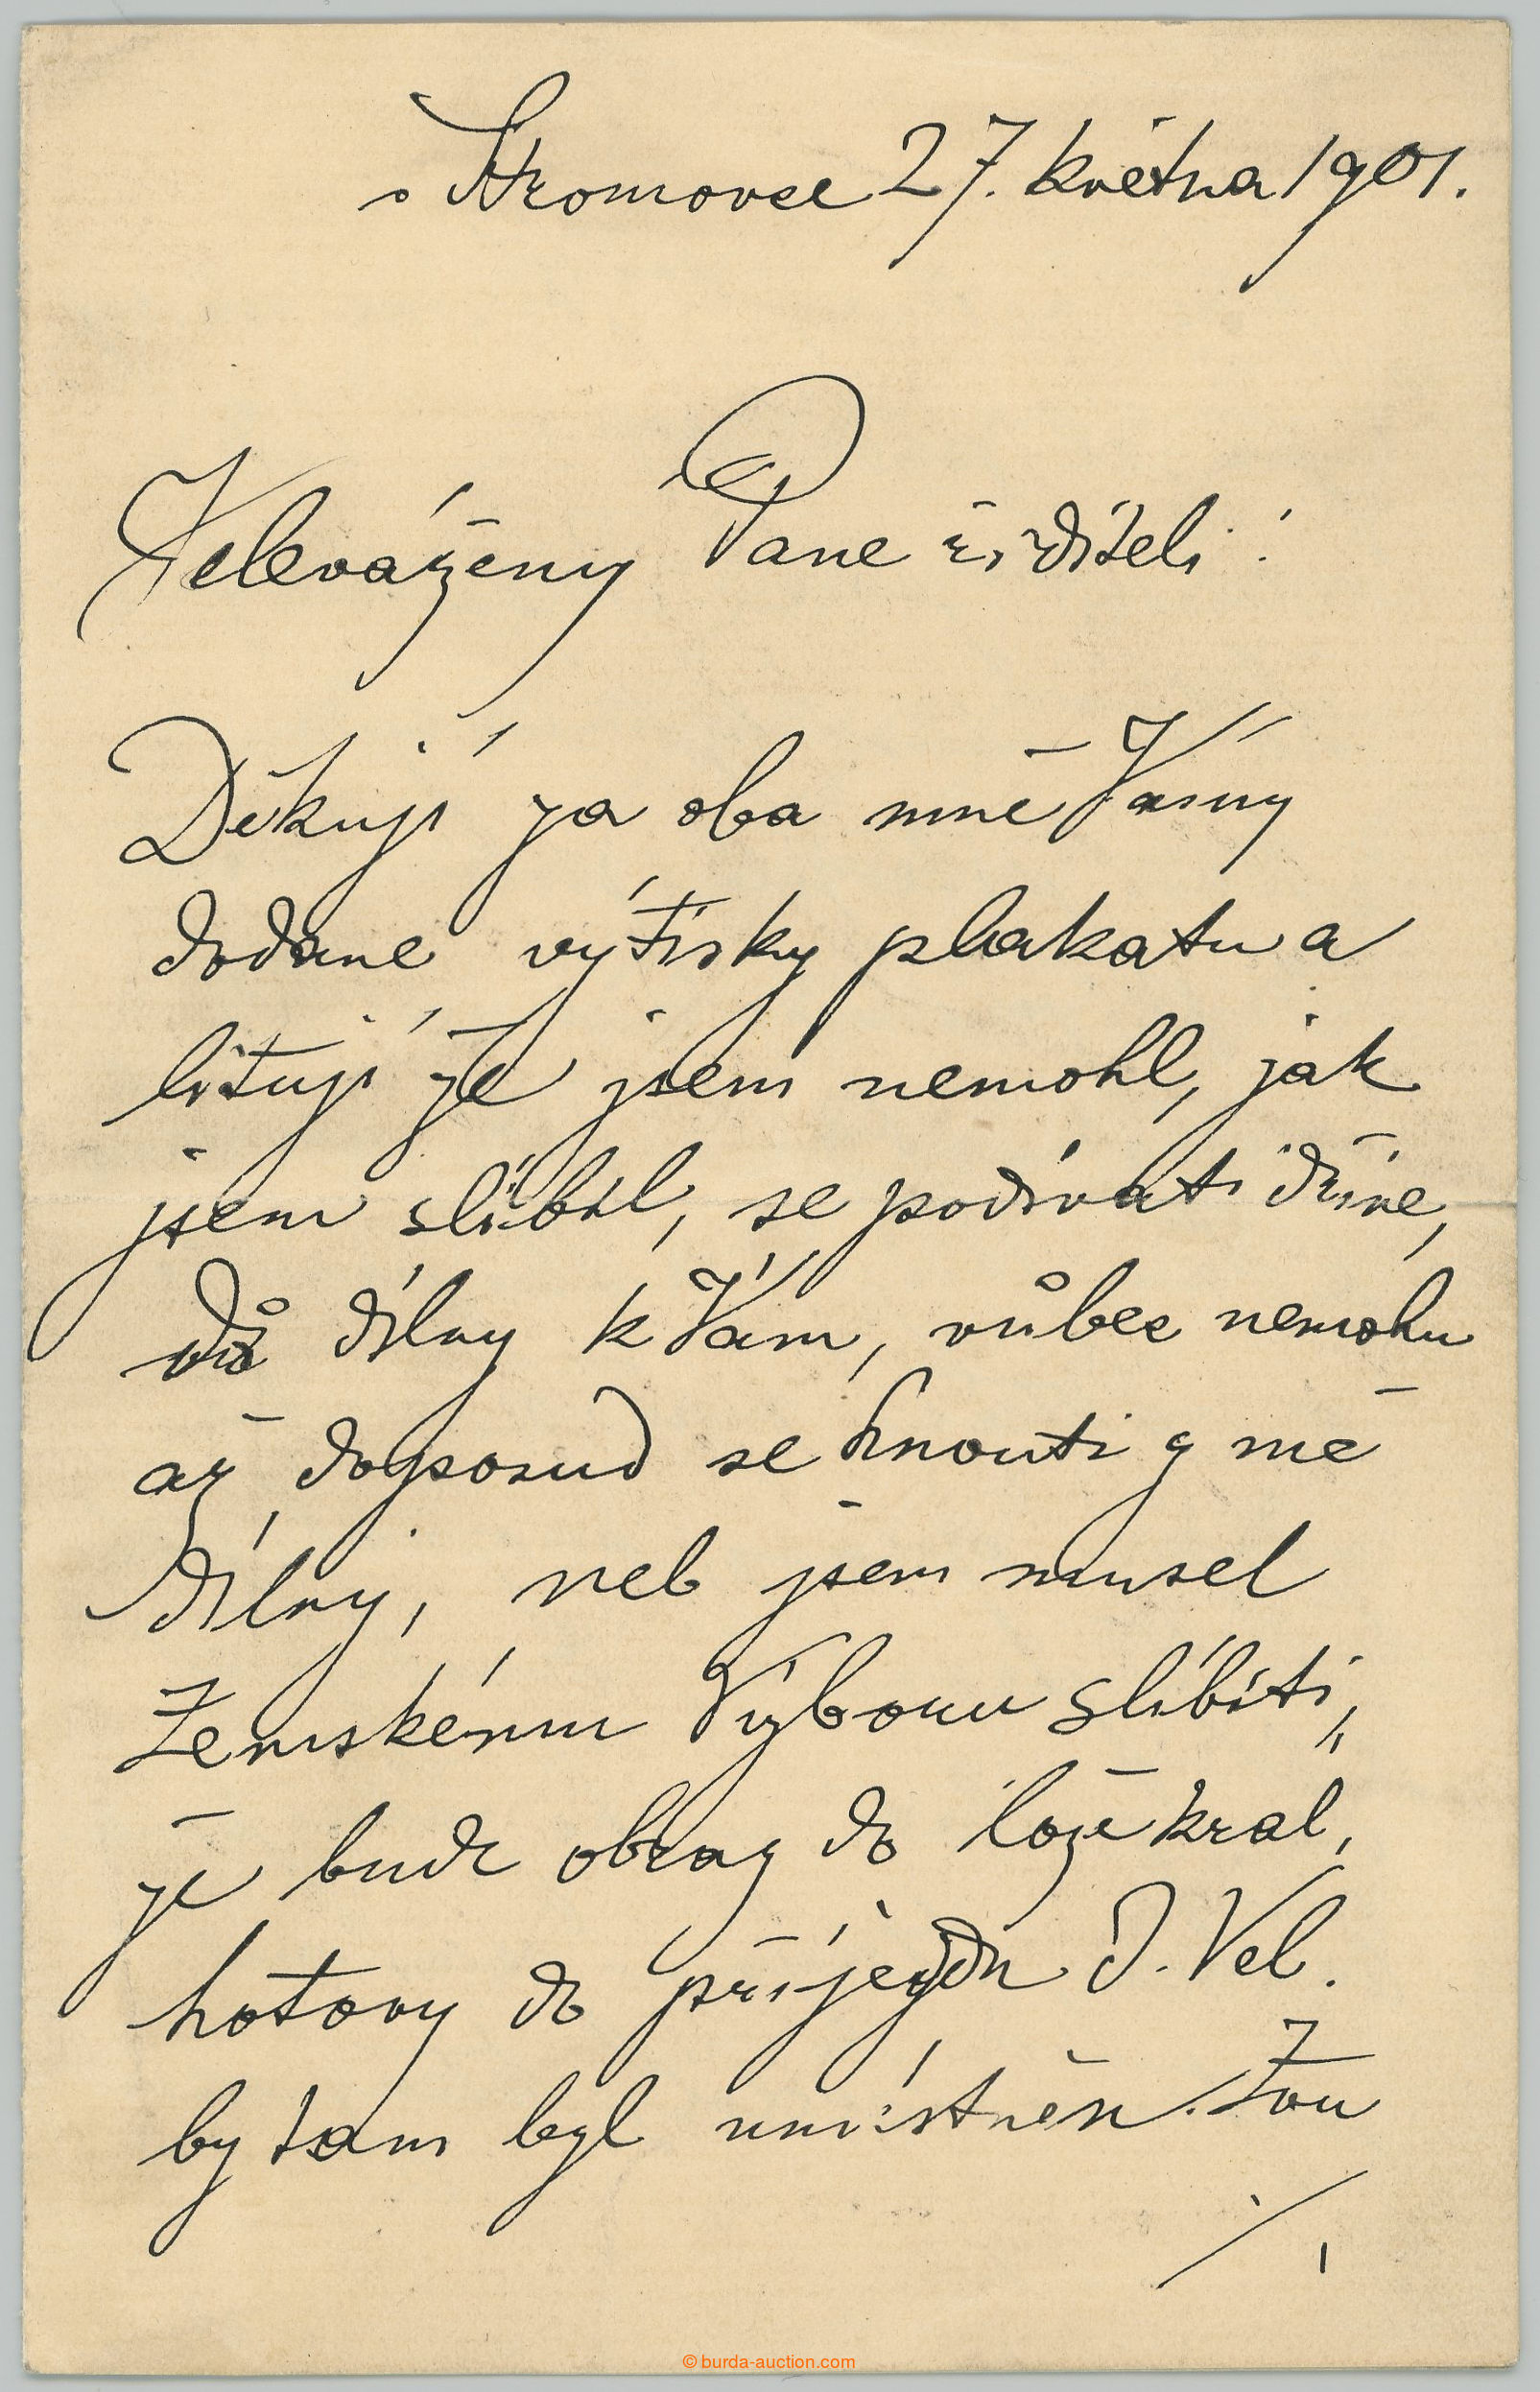 v Stromovce 27. května 1901.
Velevážený Pane řiditeli!
Děkuji za oba mně Vámi
dodané výtisky plakatu a
lituji že jsem nemohl, jak
jsem slíbil, se podívati dříve,
do dílny k Vám, vůbec nemohu
až doposud se hnouti z mé
dílny, neb jsem musel
Zemskému Výboru slíbiti,
že bude obraz do lože král,
hotovy do příjezdu J. Vel.
by tam byl umístněn. Tou
./1
© burda-auction.com